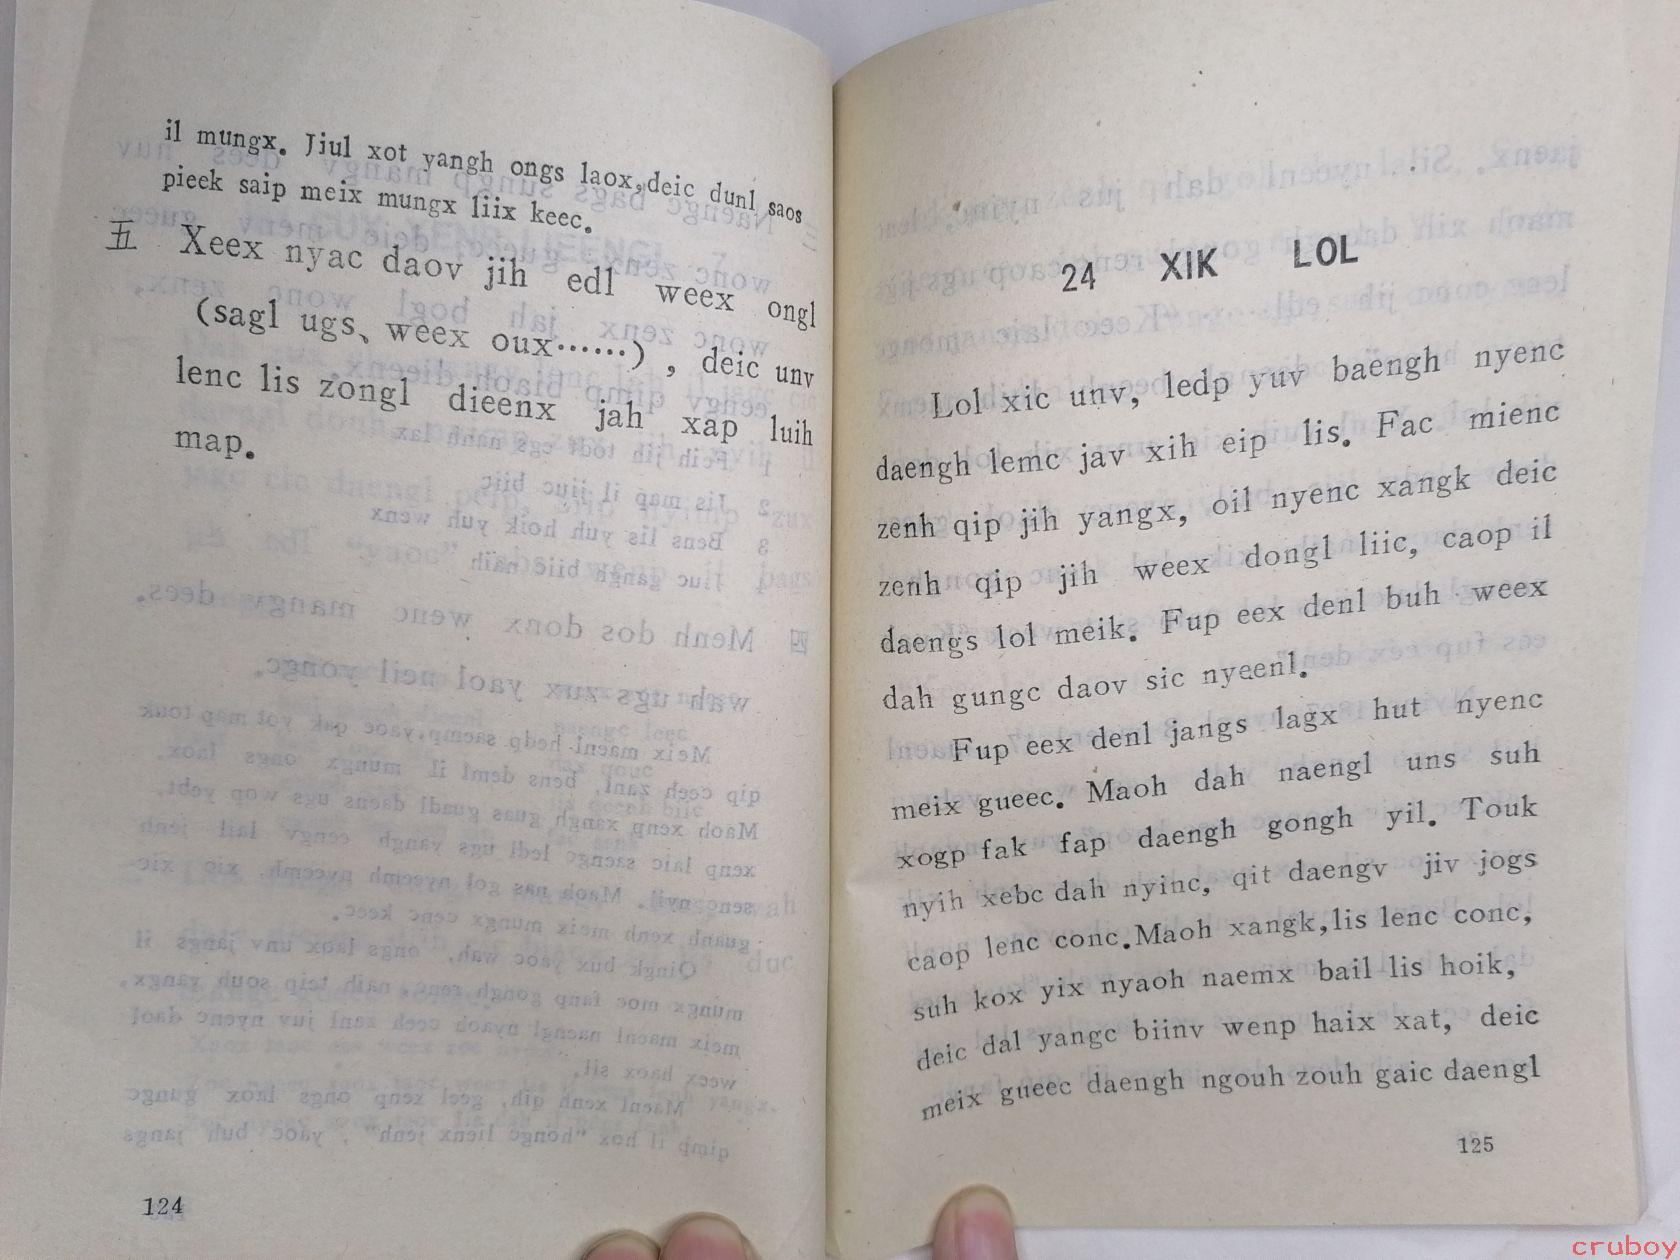 il mungx. Jiul xot yangh ongs laox,deic dunl saos
pieek saip meix mungx liix keec.
五 Xeex nyac daov jih edl weex ongl
(sagl ugs、weex oux……) , deic unv
lenc lis zongl dieenx jah xap luih
map.
124
24 XIK LOL
Lol xic unv, ledp yuv baengh nyenc
daengh lemc jav xih eip lis. Fac mienc
zenh qip jih yangx, oil nyenc xangk deic
zenh qip jih weex dongl liic, caop il
daengs lol meik. Fup eex denl buh weex
dah gungc daov sic nyeenl.
Fup eex denl jangs lagx hut nyenc
meix gueec. Maoh dah naengl uns suh
xogp fak fap daengh gongh yil. Touk
nyih xebc dah nyinc, qit daengv jiv jogs
caop lenc conc.Maoh xangk,lis lenc conc,
suh kox yix nyaoh naemx bail lis hoik,
deic dal yangc biinv wenp haix xat, deic
meix gueec daengh ngouh zouh gaic daengl
125
cruboy